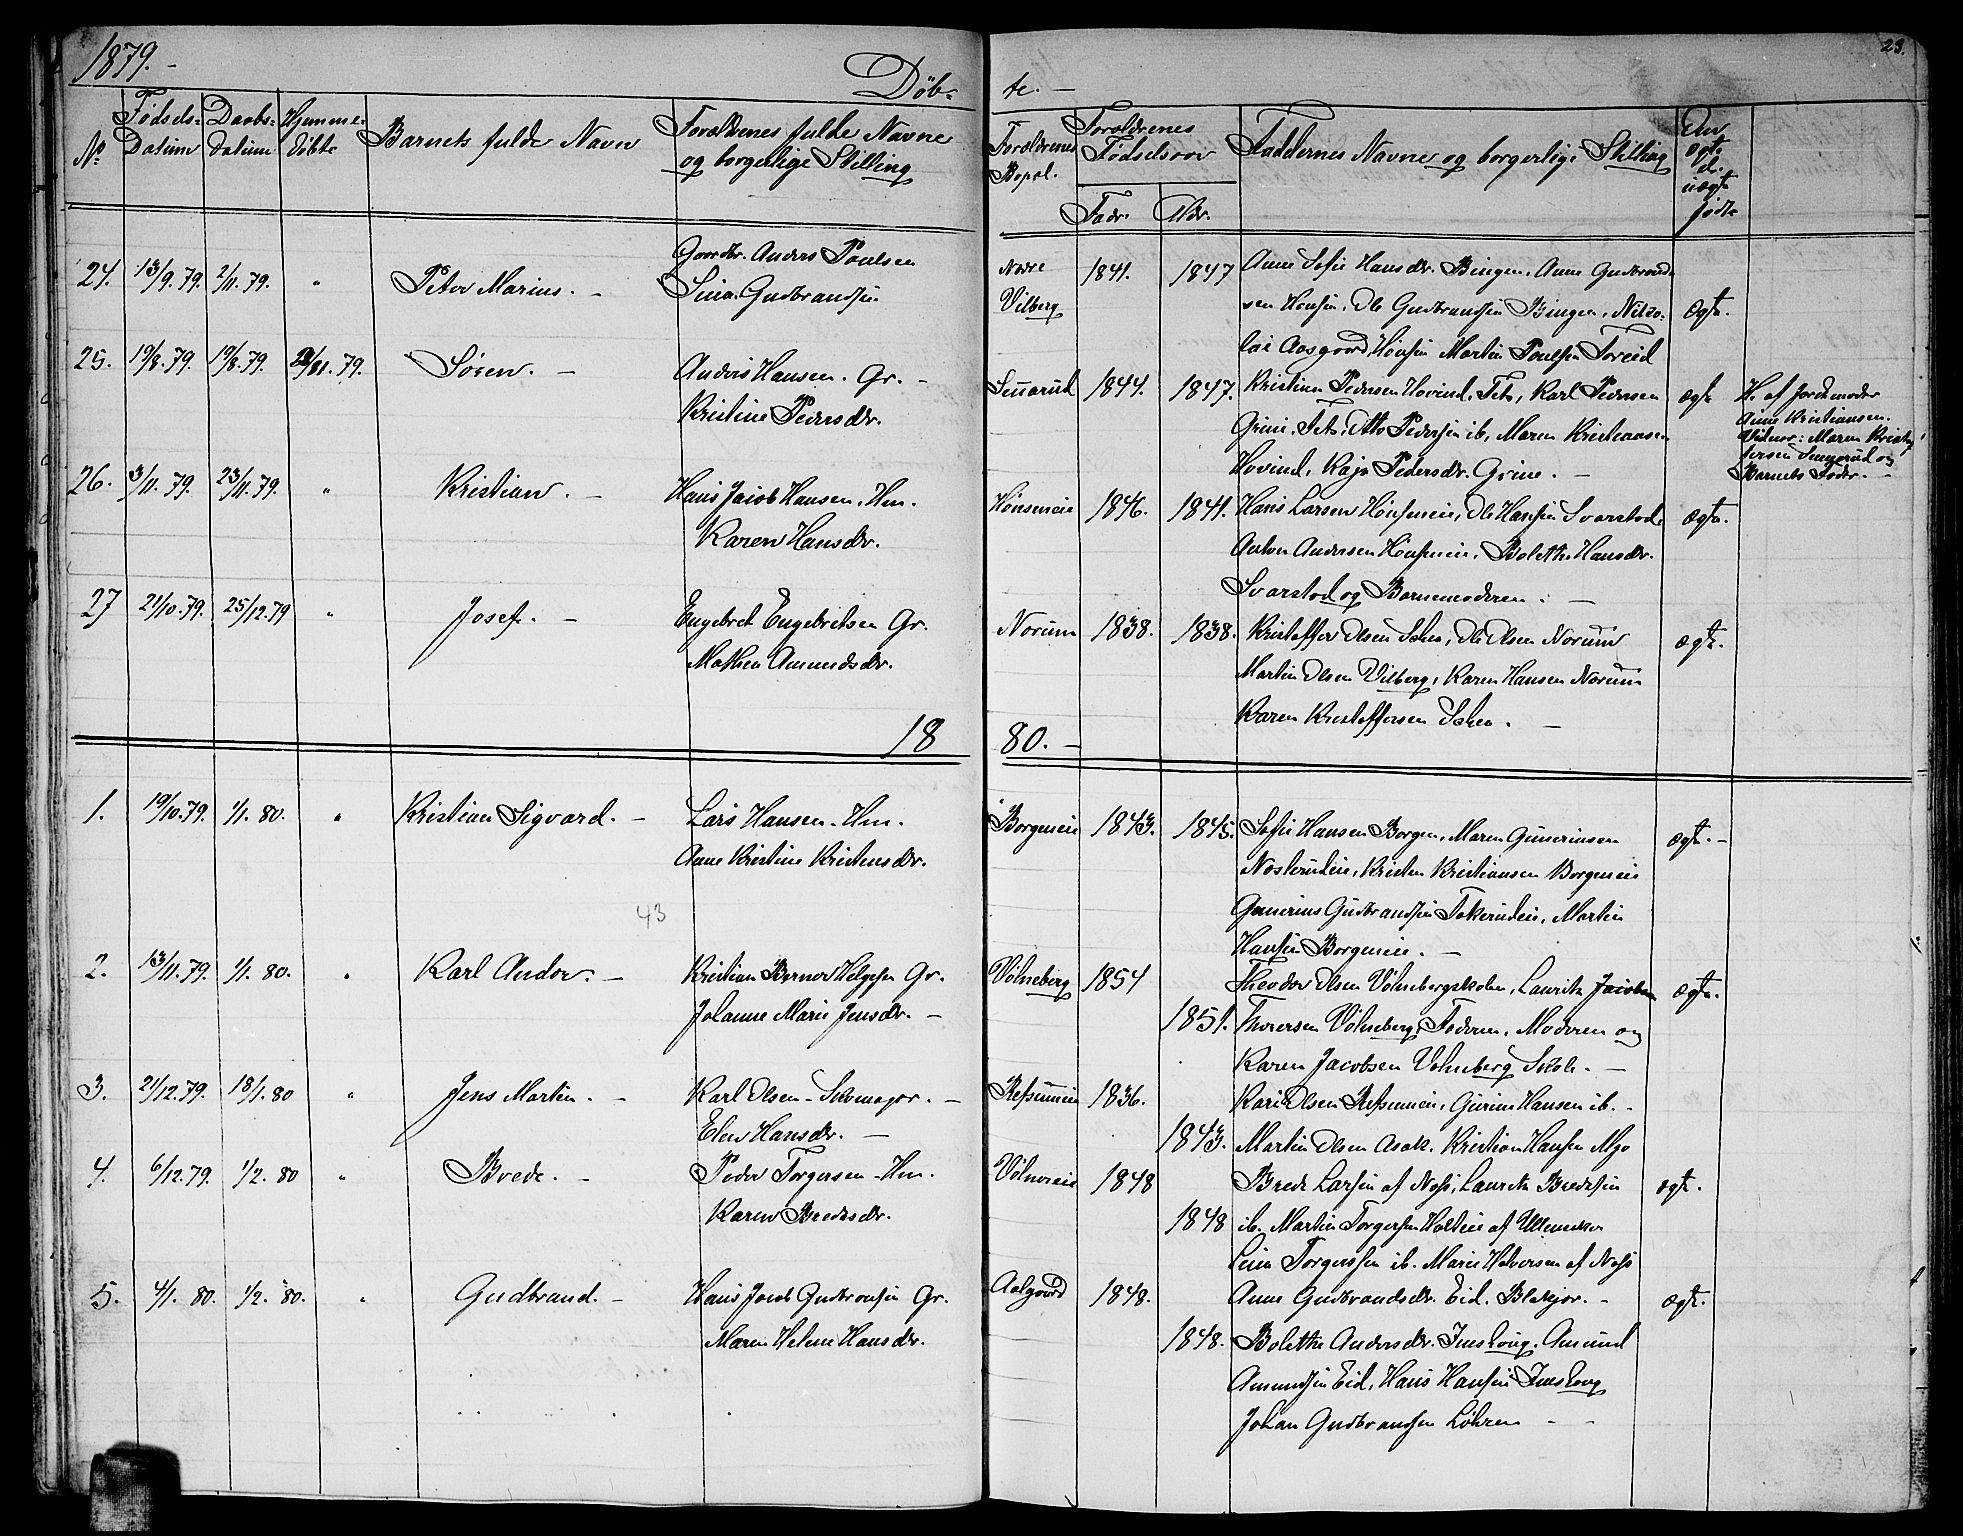 1879. -
Døb-
te. -
23.
No
Fødsels-
Datum
Daabs-
datum
Hjemme-
døbte
Barnets fulde Navn
Forældrenes fulde Navne
og borgerlige Stilling
Forældrenes
Bopæl.
Forældrenes
Fødselsaar
Fadr.
Mdr.
Faddernes Navne og borgerlige Stilling
Om
ægte
el.
uægte
fødte
24. 13/9.79. 2/11.79. " Peter Marius. -
Gaardbr. Anders Poulsen
Lina Gudbrandsen
Nedre
Vilberg
1841. 1847
Anne Sofie Hansdr. Bingen, Anne Gudbrand-
sen Hønsen, Ole Gudbrandsen Bingen, Niko-
lai Aasgaard, Hønsen Martin Poulsen Foreid
Ægte.
25. 19/8.79. 19/8.79. 79. Søren. -
Anders Hansen. Gr. -
Kristine Pedersdr.
1844. 1847.
Kristian Pedersen Hovind, Fets, Karl Pedersen
Grini, Fets, Otto Pedersen ib, Maren Kristiansen
Hovind, Kaja Pedersdr. Grine. -
ægte
H. af Jordemoder
Anne Kristiansen.
Vidner: Maren
og
Barnets Fader. -
26. 3/11.79. 23/11.79. " Kristian. -
Hans Jacob Hansen, Hm.
Karen Hansdr.
Hønsmeie
1846. 1841.
Hans Larsen Hønsmeie, Ole Hansen Svarstad
Anton Andersen Hønsmeie, Bolette Hansdr.
Svarstad og Barnemoderen. -
Ægte.
27 21/10.79. 25/12.79 " Josef. -
Engebret Engebretsen Gr.
Mathea Amundsdr.
Norum
1838. 1838.
Kristoffer Olsen, Ole Olsen Norum
Martin Olsen Vilberg, Karen Hansen Norum
Karen Kristoffersen. -
ægte.
18 80. -
1. 19/10.79. 1/1. 80. " Kristian Sigvard. -
Lars Hansen. Hm.
Anne Kristine Kristensdr.
Borgeneie
1843. 1845.
Sofie Hansen Borgen, Maren Gunerinsen
Kristen Kristiansen Borgeneie
Gunerius Gudbrandsen, Martin
Hansen Borgeneie. -
ægte. -
43
2. 13/11.79. 1/1. 80. " Karl Andor. -
Kristian Berner Helgesen Gr.
Johanne Marie Jensdr. -
Vølneberg
1854
1851.
Theodor Olsen Vølnebergskolen, Lauritz Jacobsen
Thoresen Vølneberg, Faderen, Moderen og
Karen Jacobsen Vølneberg Skole. -
ægte.
3. 21/12.79. 18/1.80 " Jens Martin. -
Karl Olsen - Skomager. -
Elen Hansdr. -
Refsumeie
1836.
1843.
Kari Olsen Refsumeie, Gurine Hansen ib. -
Martin Olsen Asak, Kristian Hansen Myo
4. 6/12.79. 1/2. 80 " Brede. -
Peder Torgersen - Hm.
Karen Bredesdr.
Vølneeie
1848
1848
Brede Larsen af Næs, Lauritz Bredesen
ib. Martin Torgersen Holteie af Ullensaker
Lina Torgersen ib. Marie Halvorsen af Næs
ægte.
5. 4/1. 80. 1/2. 80. " Gudbrand. -
Hans Jacob Gudbrandsen Gr.
Maren Helene Hansdr.
Aalgaard
1848.
1848.
Anne Gudbrandsdr. Eid, Blakjær. -
Bolette Andersdr. Imshoug, Amund
Amundsen Eid, Hans Hansen Imshoug
Johan Gudbrandsen Løhren - -
ægte.